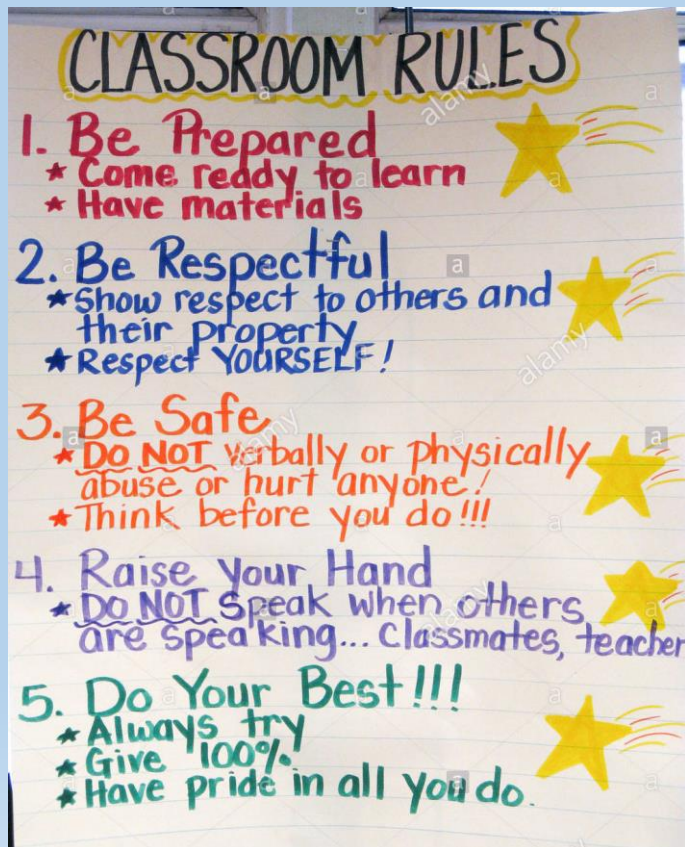 CLASSROOM RULES
1. Be Prepared
★ Come ready to learn
★ Have materials
2. Be Respectful
★ Show respect to others and
their property
★ Respect YOURSELF!
3. Be Safe
★ DO NOT verbally or physically
abuse or hurt anyone!
★ Think before you do!!!
4. Raise Your Hand
★ DO NOT Speak when others
are speaking... Classmates, teacher
5. Do Your Best!!!
★ Always try
★ Give 100%
★ Have pride in all you do.
alamy
alamy
alamy
alamy